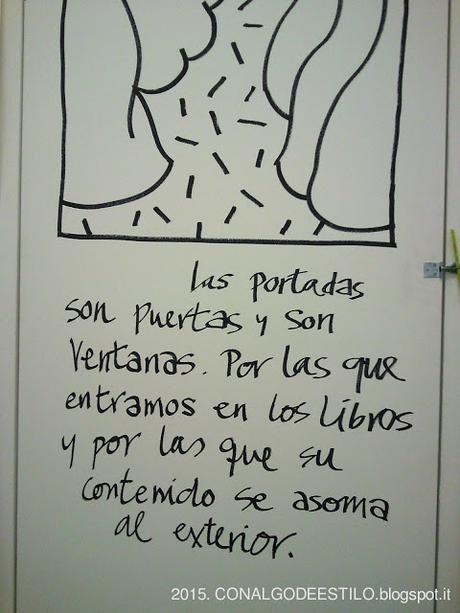 las portadas
son puertas y son
ventanas. Por las que
entramos en los libros
y por las que su
contenido se asoma
al exterior.
2015. CONALGODEESTILO.blogspot.it